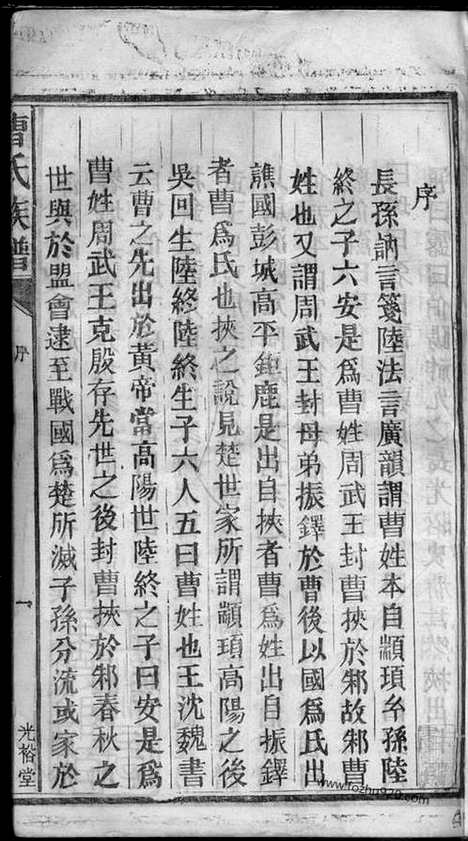 序
長孫訥言箋陸法言廣韻謂曹姓本自顓頊玄孫陸
終之子六安是爲曹姓周武王封曹挾於邾故邾曹
姓也又謂周武王封母弟振鐸於曹後以國爲氏出
譙國彭城高平鉅鹿是出自挾者曹爲姓出自振鐸
者曹爲氏也挾之說見楚世家所謂顓頊高陽之後
吳回生陸終陸終生子六人五曰曹姓也王沈魏書
云曹之先出於黃帝當高陽世陸終之子曰安是爲
曹姓周武王克殷存先世之後封曹挾於邾春秋之
世與於盟會逮至戰國爲楚所滅子孫分流或家於
曹氏族譜
序
一
光裕堂
www.fozhu920.com